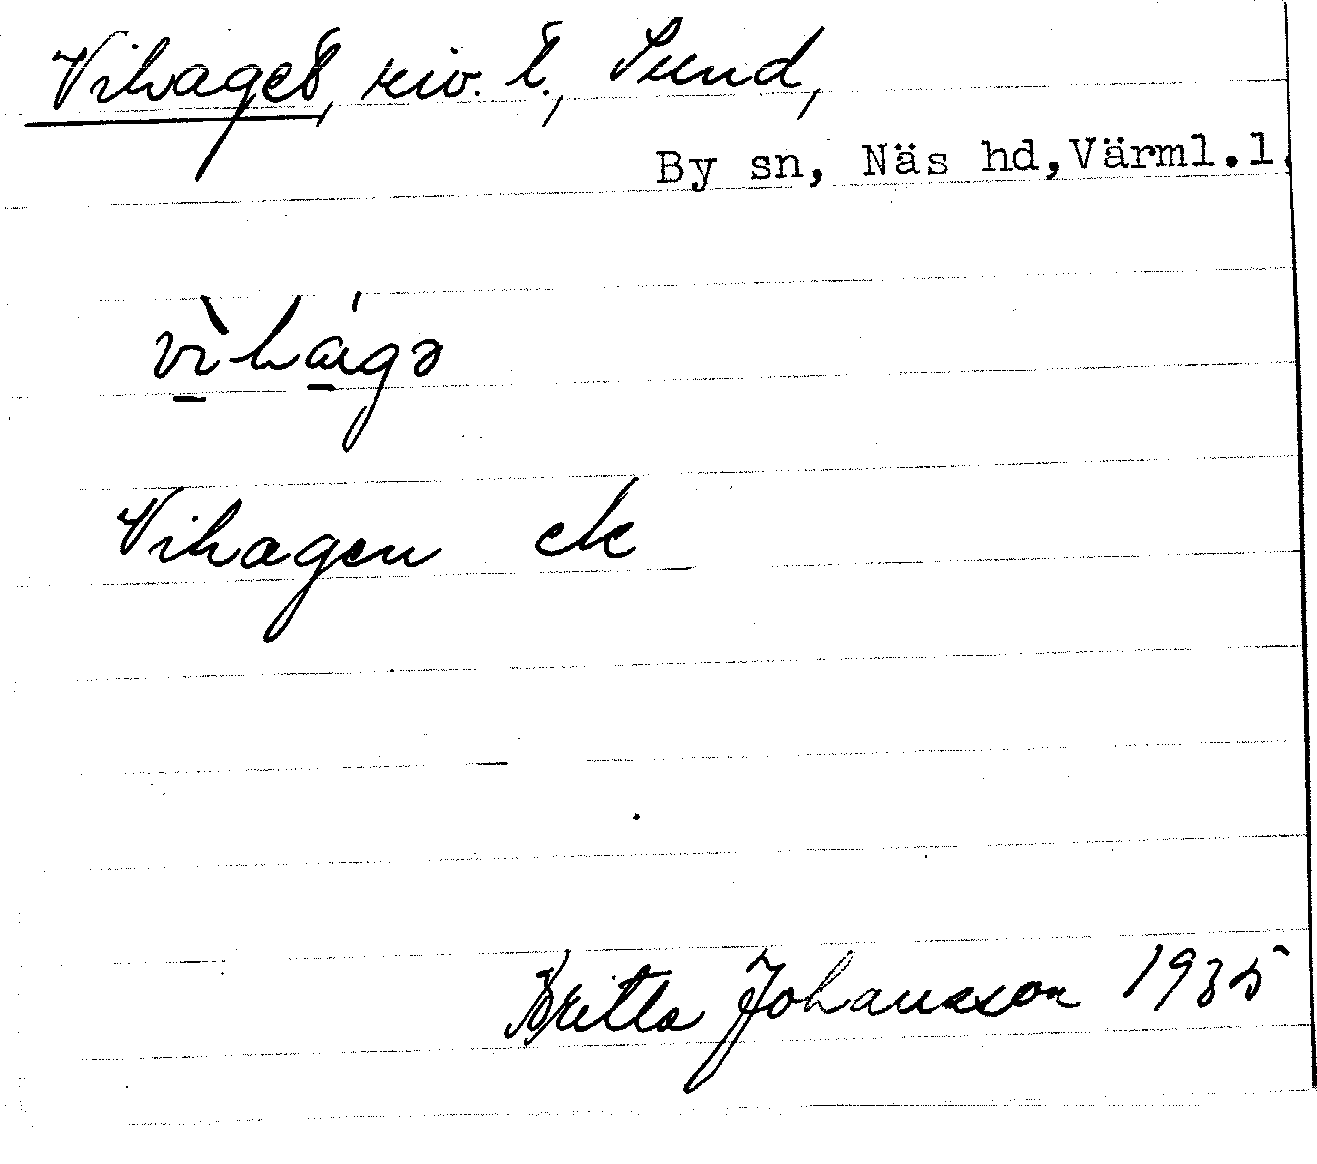 Vihaget, riv. t., Sund,
By sn, Näs hd, Värml.l.
vìhágə
Vihagen ek
Britta Johansson 1935